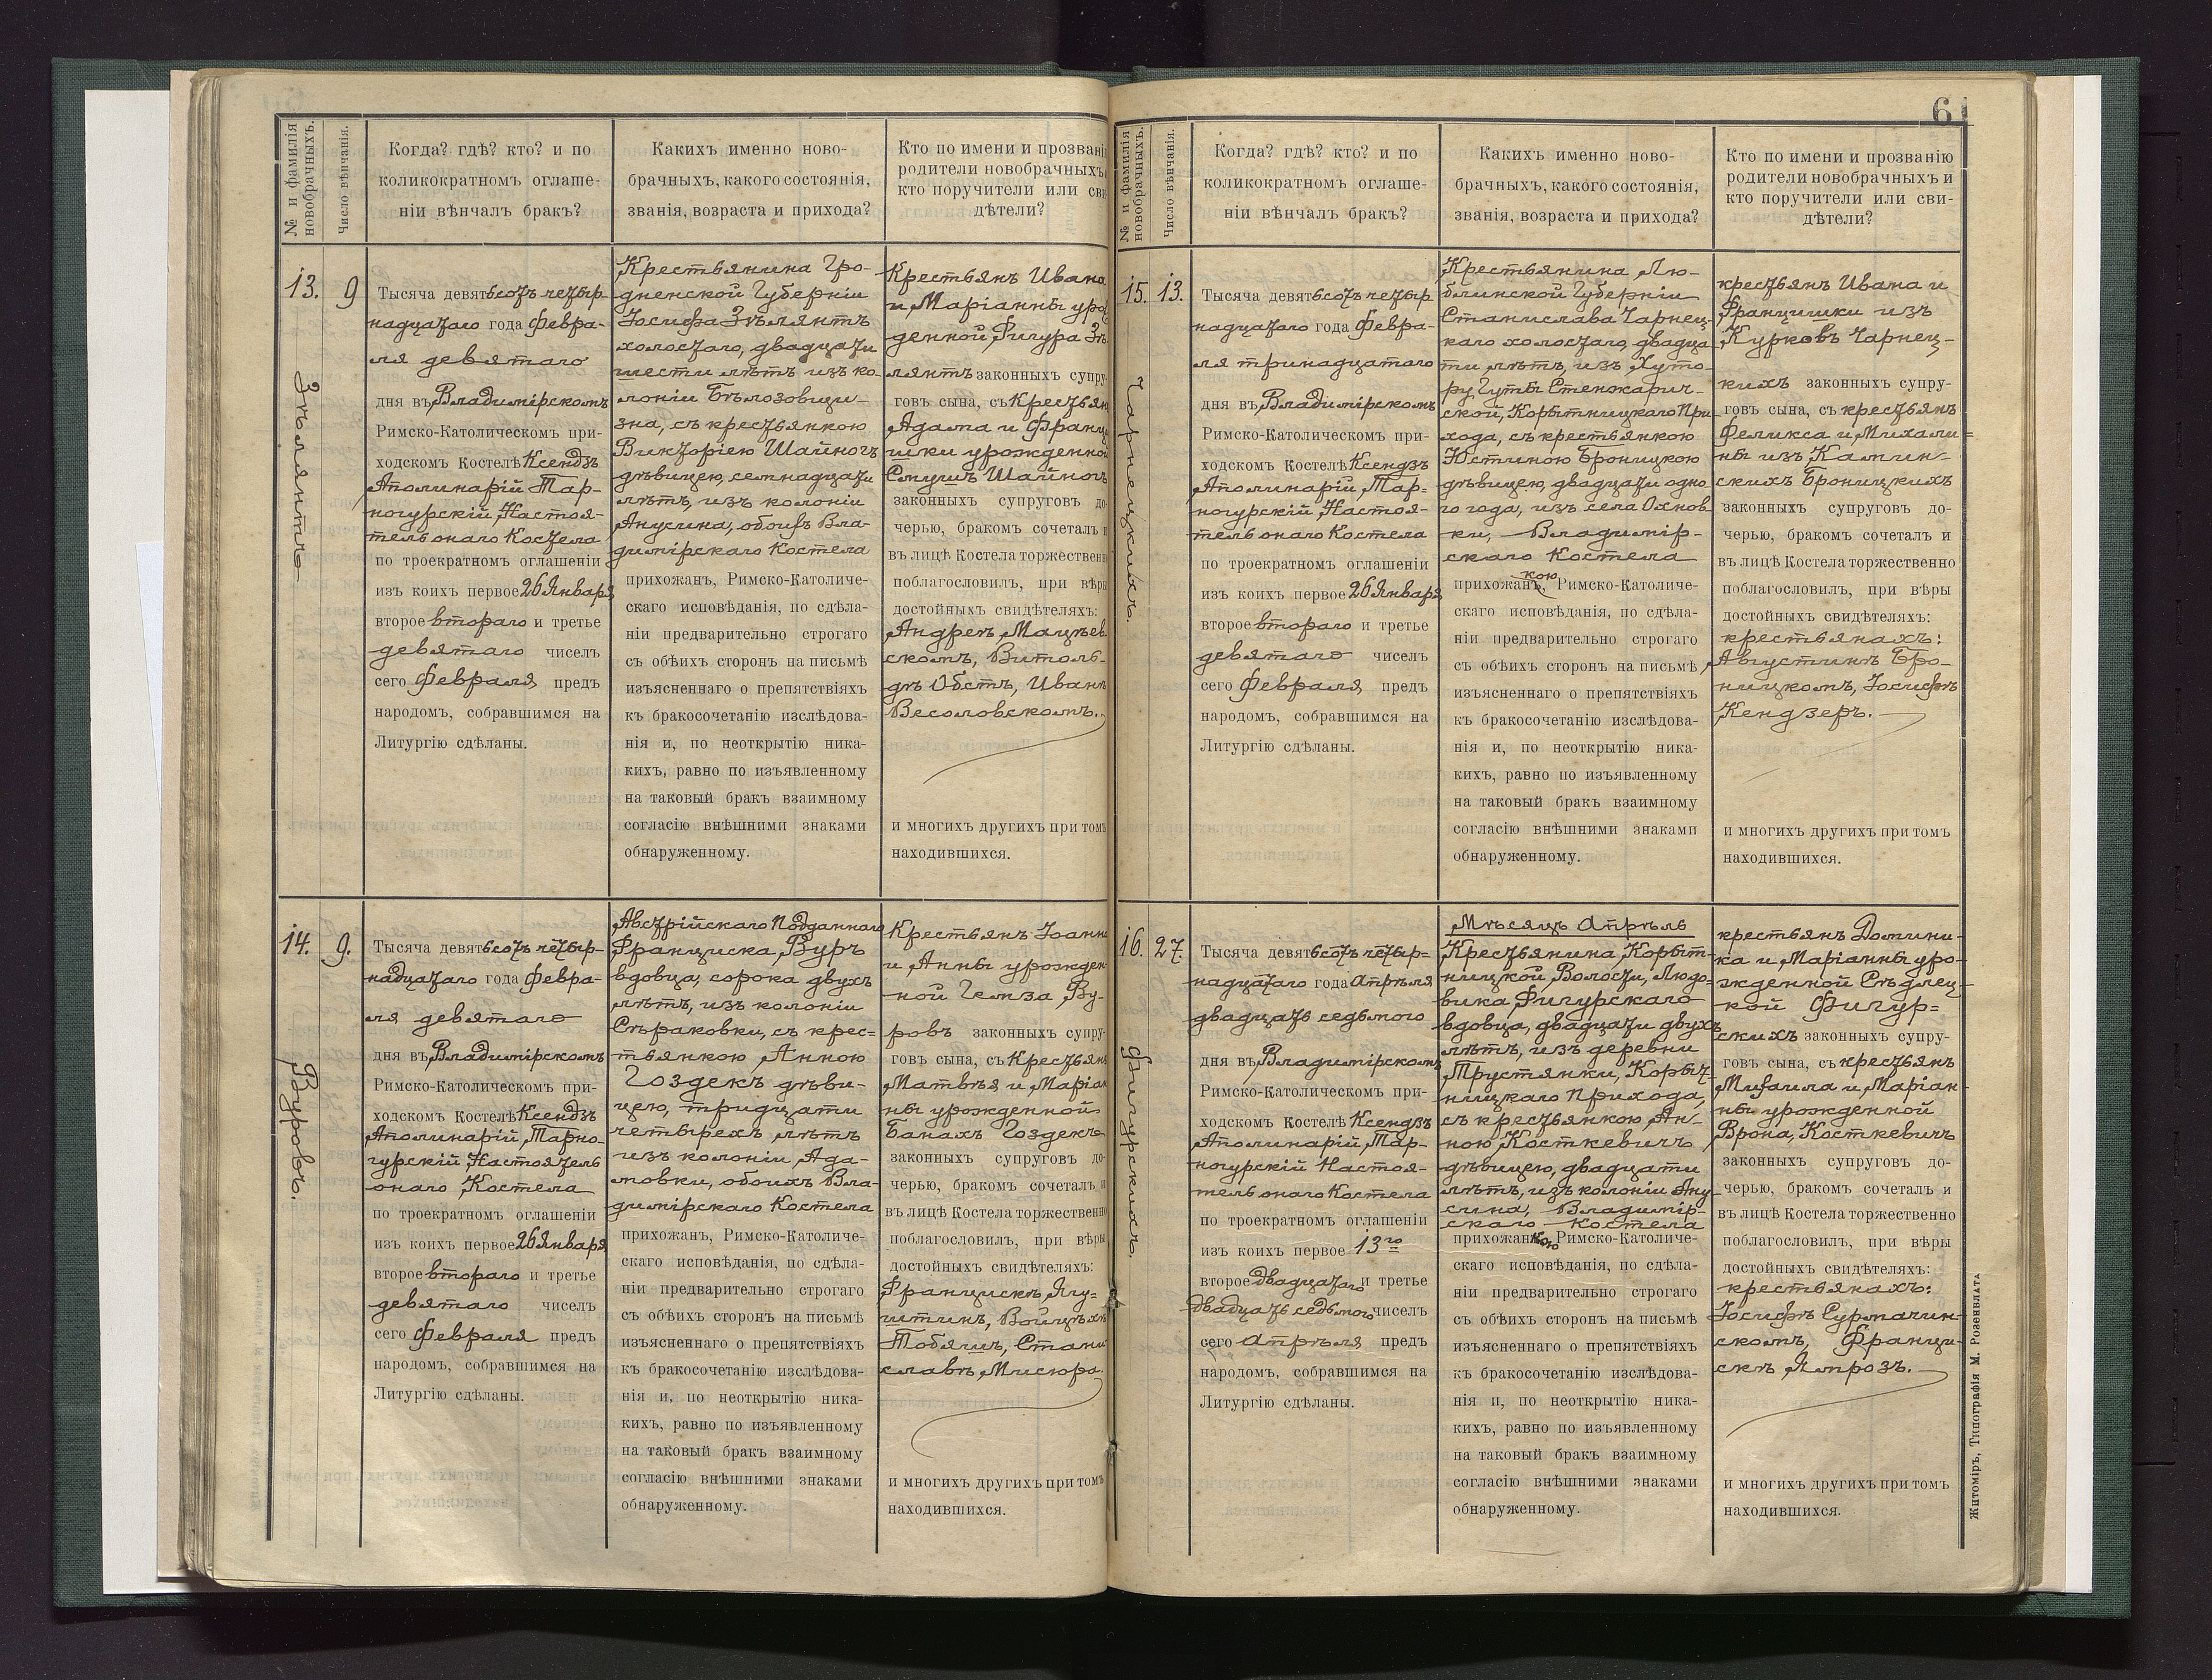 № и фамилія
новобрачныхъ.
Число вѣнчанія.
Когда? гдѣ? кто? и по
коликократномъ оглаше-
ніи вѣнчалъ бракъ?
Какихъ именно ново-
брачныхъ, какого состоянія,
званія, возраста и прихода?
Кто по имени и прозванію
родители новобрачныхъ
кто поручители или сви-
дѣтели?
13.
9
Зѣлянтъ
Тысяча девятьсотъ четыр-
надцатаго года Февра-
ля девятаго
дня въ Владимірскомъ
Римско-Католическомъ при-
ходскомъ Костелѣ Ксендзъ
Аполинарій Тар-
ногурскій, Настоя-
тель онаго Костела
по троекратномъ оглашеніи
изъ коихъ первое 26 Января
второе втораго и третье
девятаго чиселъ
сего Февраля предъ
народомъ, собравшимся на
Литургію сдѣланы.
Крестьянина Гро-
дненской Губерніи
Іосифа Зѣлянтъ
холостаго, двадцати
шести лѣтъ изъ ко-
лоніи Бѣлозовщи-
зна, съ крестьянкою
Викторіею Шайногъ
дѣвицею, семнадцати
лѣтъ, изъ колоніи
Анусина, обоихъ Вла-
димірскаго Костела
прихожанъ, Римско-Католиче-
скаго исповѣданія, по сдѣла-
ніи предварительно строгаго
съ обѣихъ сторонъ на письмѣ
изъясненнаго о препятствіяхъ
къ бракосочетанію изслѣдова-
нія и, по неоткрытію ника-
кихъ, равно по изъявленному
на таковый бракъ взаимному
согласію внѣшними знаками
обнаруженному.
Крестьянъ Ивана
и Маріанны уро-
жденной Фигура Зѣ-
лянтъ законныхъ супру-
говъ сына, съ Крестьян
Адама и Франци
шки урожденной
Смушъ Шайногъ
законныхъ супруговъ до-
черью, бракомъ сочеталъ и
въ лицѣ Костела торжественно
поблагословилъ, при вѣры
достойныхъ свидѣтеляхъ:
Андреѣ Мацѣев
скомъ, Витоль-
дѣ Обстъ, Иванѣ
Весоловскомъ.
и многихъ другихъ при томъ
находившихся.
14.
9.
Вуровъ.
Тысяча девятьсотъ четыр-
надцатаго года Февра-
ля девятаго
дня въ Владимірскомъ
Римско-Католическомъ при-
ходскомъ Костелѣ Ксендзъ
Аполинарій, Тарно-
гурскій, Настоятель
онаго Костела
по троекратномъ оглашеніи
изъ коихъ первое 26 Января
второе втораго и третье
девятаго чиселъ
сего Февраля предъ
народомъ, собравшимся на
Литургію сдѣланы.
Австрійскаго Подданнаго
Франциска, Вуръ
вдовца, сорока двухъ
лѣтъ, изъ колоніи
Сѣраковки, съ крес=
тьянкою Анною
Гоздекъ дѣви-
цею, тридцати
четырехъ лѣтъ
изъ колоніи Ада-
мовки, обоихъ Вла-
димірскаго Костела
прихожанъ, Римско-Католиче-
скаго исповѣданія, по сдѣла-
ніи предварительно строгаго
съ обѣихъ сторонъ на письмѣ
изъясненнаго о препятствіяхъ
къ бракосочетанію изслѣдова-
нія и, по неоткрытію ника-
кихъ, равно по изъявленному
на таковый бракъ взаимному
согласію внѣшними знаками
обнаруженному.
Крестьянъ Іоанна
и Анны урожден
ной Гемза, Ву-
ровъ законныхъ супру-
говъ сына, съ Крестьянъ
Матвѣя и Маріан
ны урожденной
Банахъ Гоздекъ
законныхъ супруговъ до-
черью, бракомъ сочеталъ и
въ лицѣ Костела торжественно
поблагословилъ, при вѣры
достойныхъ свидѣтеляхъ:
Францискѣ, Ягу=
штинъ, Войцѣхѣ
Тобяшъ, Стани
славѣ, Мисюра.
и многихъ другихъ при томъ
находившихся.
61
№ и фамилія
новобрачныхъ.
Число вѣнчанія.
Когда? гдѣ? кто? и по
коликократномъ оглаше-
ніи вѣнчалъ бракъ?
Какихъ именно ново-
брачныхъ, какого состоянія,
званія, возраста и прихода?
Кто по имени и прозванію
родители новобрачныхъ и
кто поручители или сви-
дѣтели?
15.
13.
Чарнецкихъ.
Тысяча девятьсотъ четыр
надцатаго года Февра-
ля тринадцатаго
дня въ Владимірскомъ
Римско-Католическомъ при-
ходскомъ Костелѣ Ксендзъ
Аполинарій, Тар=
ногурскій, Настоя-
тель онаго Костела
по троекратномъ оглашеніи
изъ коихъ первое 26 Января
второе втораго и третье
девятаго чиселъ
сего Февраля предъ
народомъ, собравшимся на
Литургію сдѣланы.
Крестьянина Лю-
блинской Губерніи
Станислава Чарнец-
каго холостаго, двадца
ти лѣтъ, изъ Хуто-
ру Гуты Стенжарич-
ской, Корытницкаго При-
хода, съ крестьянкою
Юстиною Броницкою
дѣвицею, двадцати одно
го года, изъ села Охнов
ки, Владимір-
скаго Костела
кою
прихожанъ, Римско-Католиче-
скаго исповѣданія, по сдѣла-
ніи предварительно строгаго
съ обѣихъ сторонъ на письмѣ
изъясненнаго о препятствіяхъ
къ бракосочетанію изслѣдова-
нія и, по неоткрытію ника-
кихъ, равно по изъявленному
на таковый бракъ взаимному
согласію внѣшними знаками
обнаруженному.
крестьянъ Ивана и
Францишки изъ
Курковъ Чарнец-
кихъ законныхъ супру-
говъ сына, съ крестьянъ
Феликса и Михали=
ны изъ Камин-
скихъ Броницкихъ
законныхъ супруговъ до-
черью, бракомъ сочеталъ и
въ лицѣ Костела торжественно
поблагословилъ, при вѣры
достойныхъ свидѣтеляхъ:
крестьянахъ:
Августинѣ Бро-
ницкомъ, Іосифѣ
Кендзеръ.
и многихъ другихъ при томъ
находившихся.
16.
27.
Фигурскихъ.
Тысяча девятьсотъ четыр=
надцатаго года Апрѣля
двадцать седьмого
дня въ Владимірскомъ
Римско-Католическомъ при-
ходскомъ Костелѣ Ксендзъ
Аполинарій, Тар-
ногурскій Настоя-
тель онаго Костела
по троекратномъ оглашеніи
изъ коихъ первое 13го
второе двадцатаго и третье
двадцать седьмого чиселъ
сего Апрѣля предъ
народомъ, собравшимся на
Литургію сдѣланы.
Мѣсяцъ Апрѣль
Крестьянина, Корыт-
ницкой, Волости, Людо-
вика Фигурскаго
вдовца, двадцати двухъ
лѣтъ, изъ деревни
Трустянки, Корыт-
ницкаго прихода,
съ крестьянкою Ан-
ною, Косткевичъ
дѣвицею, двадцати
лѣтъ, изъ колоніи Ану
сина, Владимір-
скаго Костела
прихожанкою Римско-Католиче-
скаго исповѣданія, по сдѣла-
ніи предварительно строгаго
съ обѣихъ сторонъ на письмѣ
изъясненнаго о препятствіяхъ
къ бракосочетанію изслѣдова-
нія и, по неоткрытію ника-
кихъ, равно по изъявленному
на таковый бракъ взаимному
согласію внѣшними знаками
обнаруженному.
крестьянъ Домини-
ка и Маріанны уро-
жденной Сѣдлец-
кой Фигур=
скихъ законныхъ супру-
говъ сына, съ крестьянъ
Михаила и Маріан
ны урожденной
Врона, Косткевичъ
законныхъ супруговъ до-
черью, бракомъ сочеталъ и
въ лицѣ Костела торжественно
поблагословилъ, при вѣры
достойныхъ свидѣтеляхъ:
крестьянахъ:
Іосифѣ Сурмачин-
скомъ, Франци-
скѣ Ямрозъ.
и многихъ другихъ при томъ
находившихся.
Житоміръ, Типографія М. Розенблата